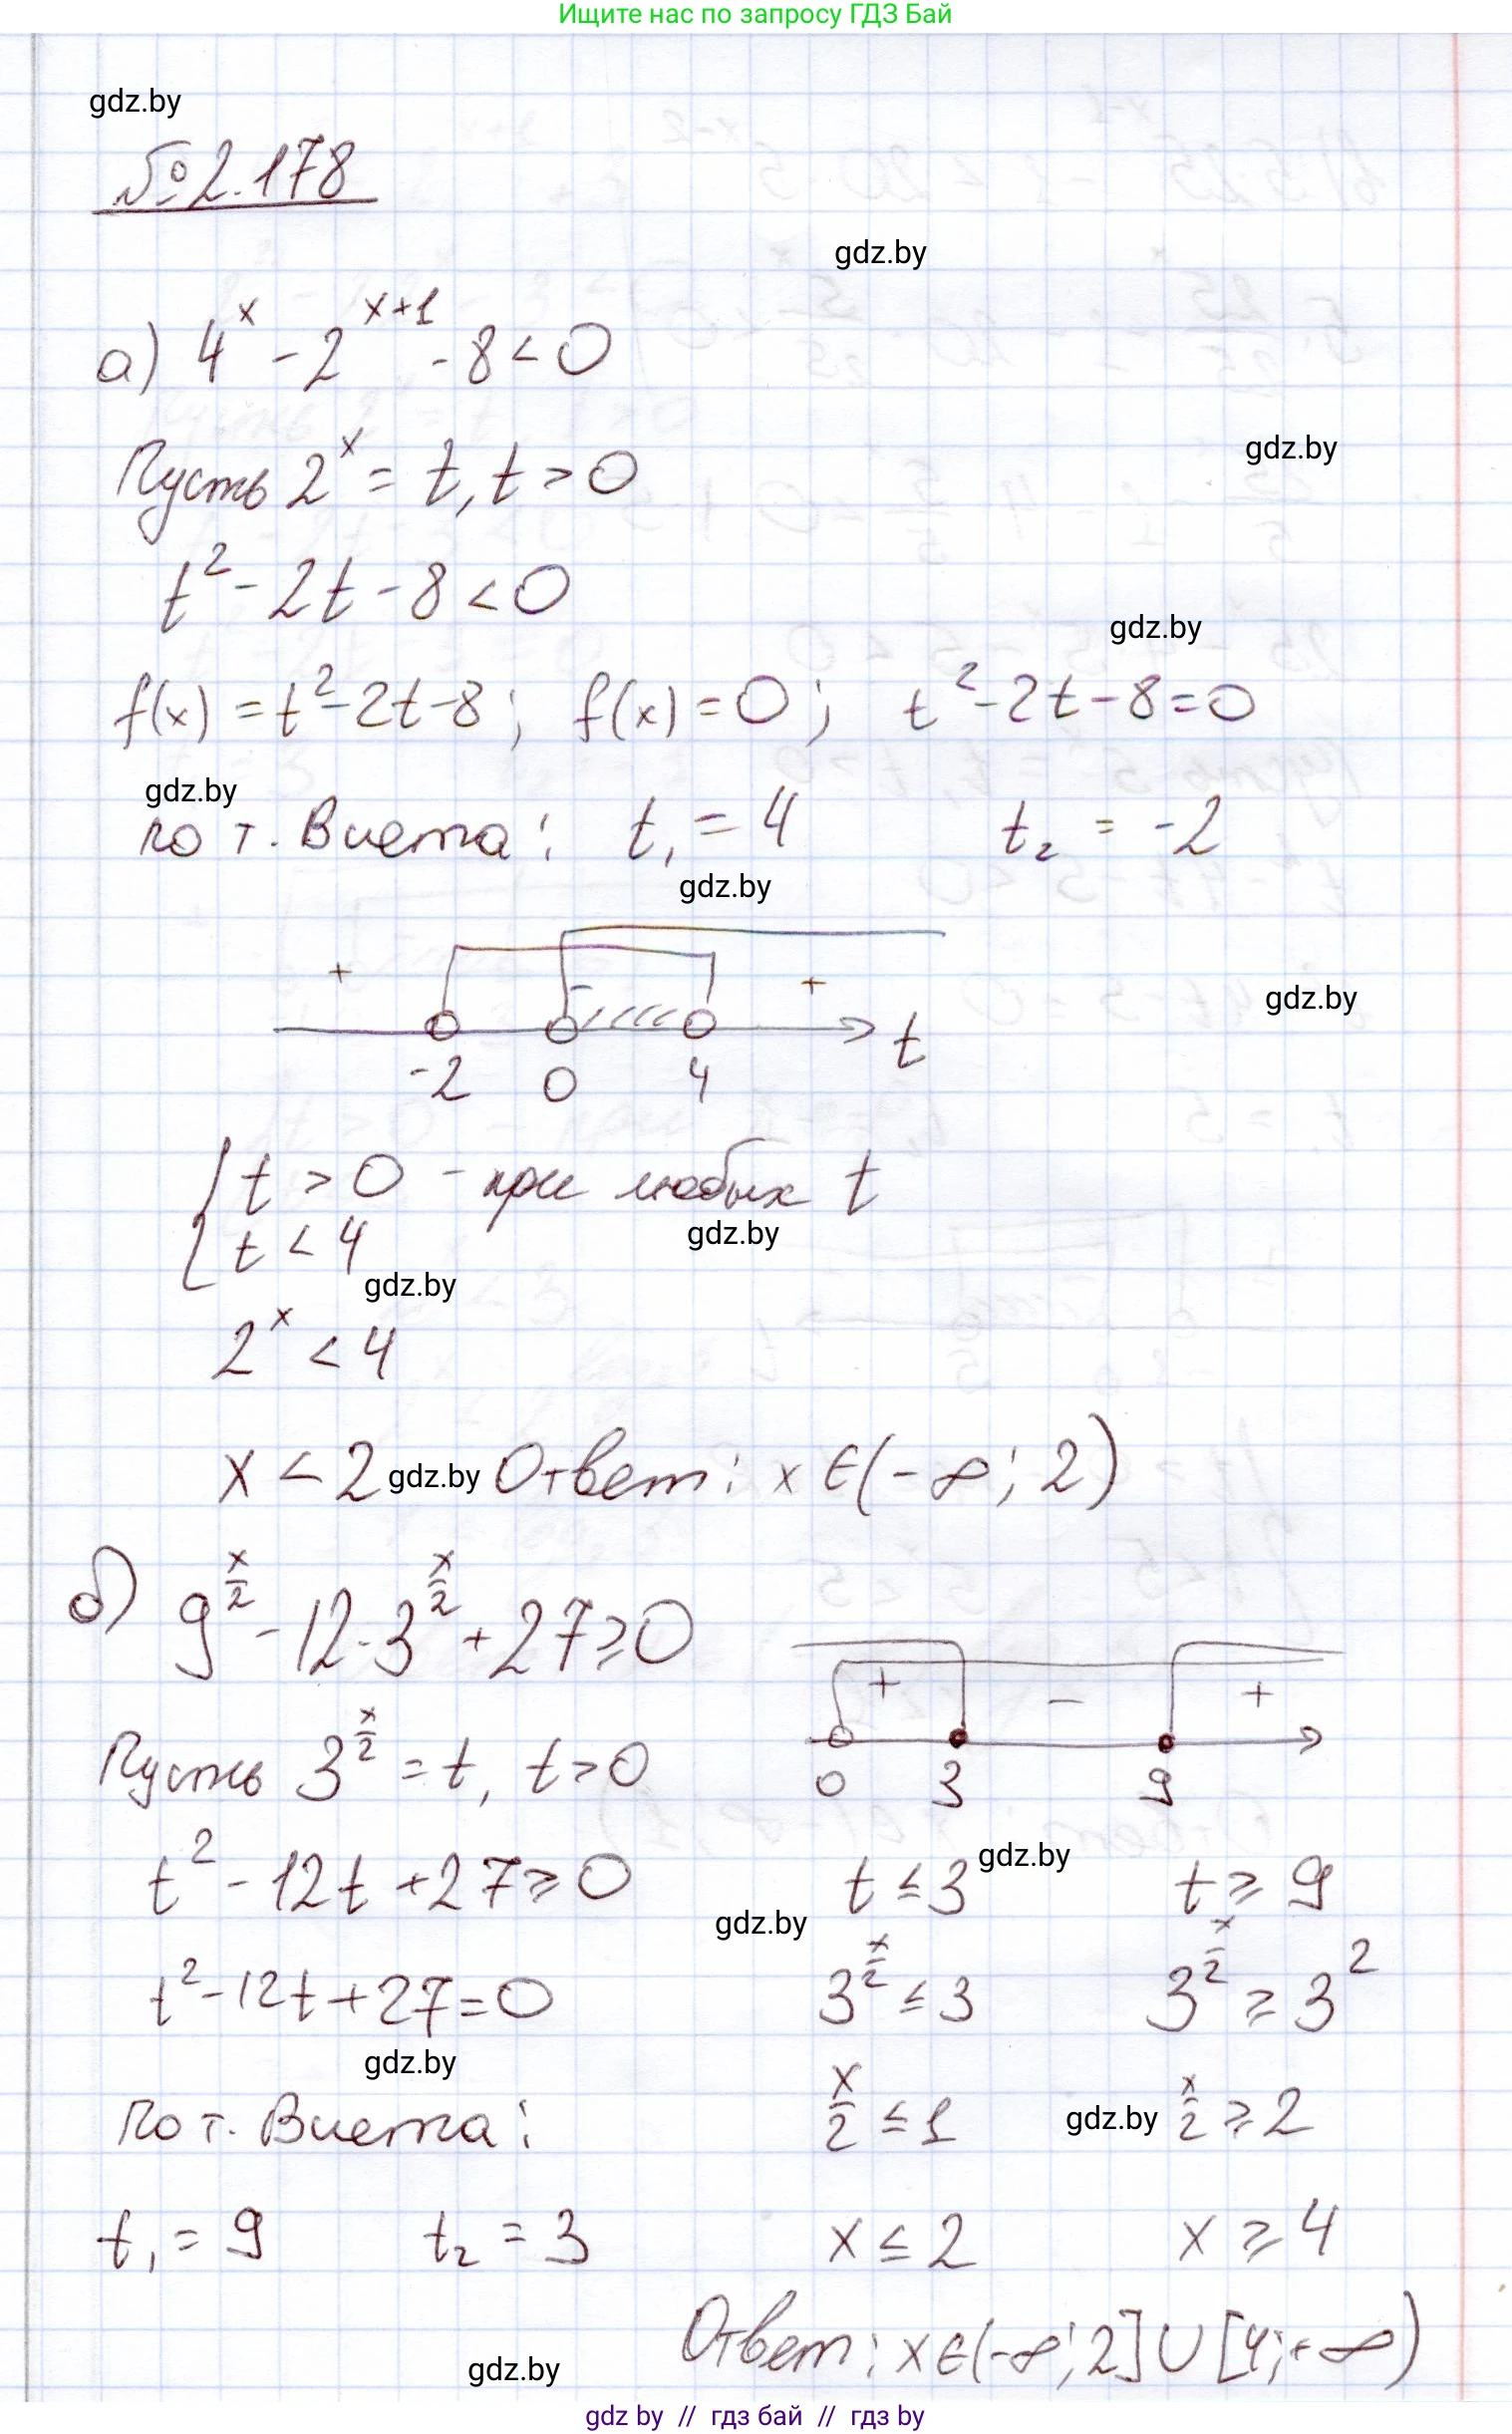 Ищите нас по запросу ГДЗ Бай
gdz.by
№ 2.178
gdz.by
а) 4^x - 2^(x+1) - 8 < 0
gdz.by
Пусть 2^x = t, t > 0
t² - 2t - 8 < 0
gdz.by
f(x) = t² - 2t - 8; f(x) = 0; t² - 2t - 8 = 0
gdz.by
по т. Виета: t₁ = 4 t₂ = -2
gdz.by
+ - +
gdz.by
-2 0 4 t
{ t > 0 - при любых t
gdz.by
{ t < 4
gdz.by
2^x < 4
x < 2 gdz.by Ответ: x ∈ (-∞; 2)
б) 9^(x/2) - 12·3^(x/2) + 27 ≥ 0
+ - +
0 3 9
Пусть 3^(x/2) = t, t > 0
gdz.by
t² - 12t + 27 ≥ 0 t ≤ 3 t ≥ 9
gdz.by
t² - 12t + 27 = 0 3^(x/2) ≤ 3 3^(x/2) ≥ 3²
gdz.by
По т. Виета: x/2 ≤ 1 gdz.by x/2 ≥ 2
t₁ = 9 t₂ = 3 x ≤ 2 x ≥ 4
Ответ: x ∈ (-∞; 2] ∪ [4; +∞)
gdz.by
gdz by // гдз бай // гдз by